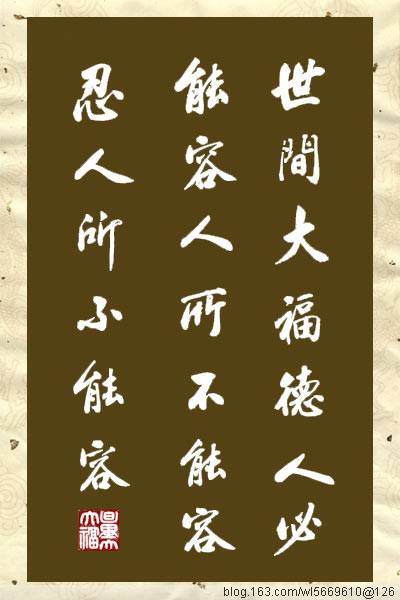 世間大福德人必
能容人所不能容
忍人所不能容
blog.163.com/wl5669610@126